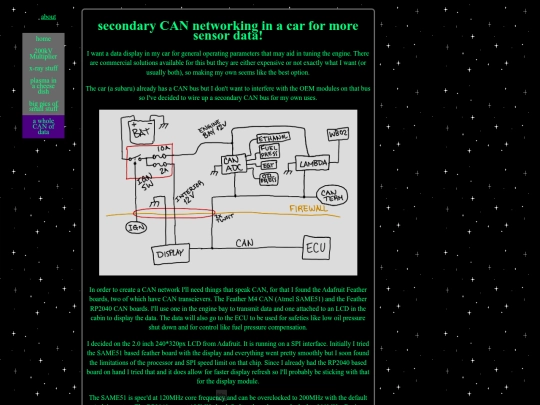 about
home
200kV
Multiplier
x-ray stuff
plasma in
a cheese
dish
big pics of
small stuff
a whole
CAN of
data
secondary CAN networking in a car for more
sensor data!
I want a data display in my car for general operating parameters that may aid in tuning the engine. There
are commercial solutions available for this but they are either expensive or not exactly what I want (or
usually both), so making my own seems like the best option.
The car (a subaru) already has a CAN bus but I don't want to interfere with the OEM modules on that bus
so I've decided to wire up a secondary CAN bus for my own uses.
+ -
BAT
ENGINE
BAY 12V
10A
2A
IGN
SW
INTERIOR
12V
CAN
ADC
ETHANOL
FUEL
PRESS
EGT
OIL
PRESS
LAMBDA
WB02
CAN
TERM
FIREWALL
IGN
DISPLAY
CAN
ECU
In order to create a CAN network I'll need things that speak CAN, for that I found the Adafruit Feather
boards, two of which have CAN transcievers. The Feather M4 CAN (Atmel SAME51) and the Feather
RP2040 CAN boards. I'll use one in the engine bay to transmit data and one attached to an LCD in the
cabin to display the data. The data will also go to the ECU to be used for safeties like low oil pressure
shut down and for control like fuel pressure compensation.
I decided on the 2.0 inch 240*320px LCD from Adafruit. It is running on a SPI interface. Initially I tried
the SAME51 based feather board with the display and everything went pretty smoothly but I soon found
the limitations of the processor and SPI speed limit on that chip. Since I already had the RP2040 based
board on hand I tried that and it does allow for faster display refresh so I'll probably be sticking with
that for the display module.
The SAME51 is spec'd at 120MHz core frequency and can be overclocked to 200MHz with the default